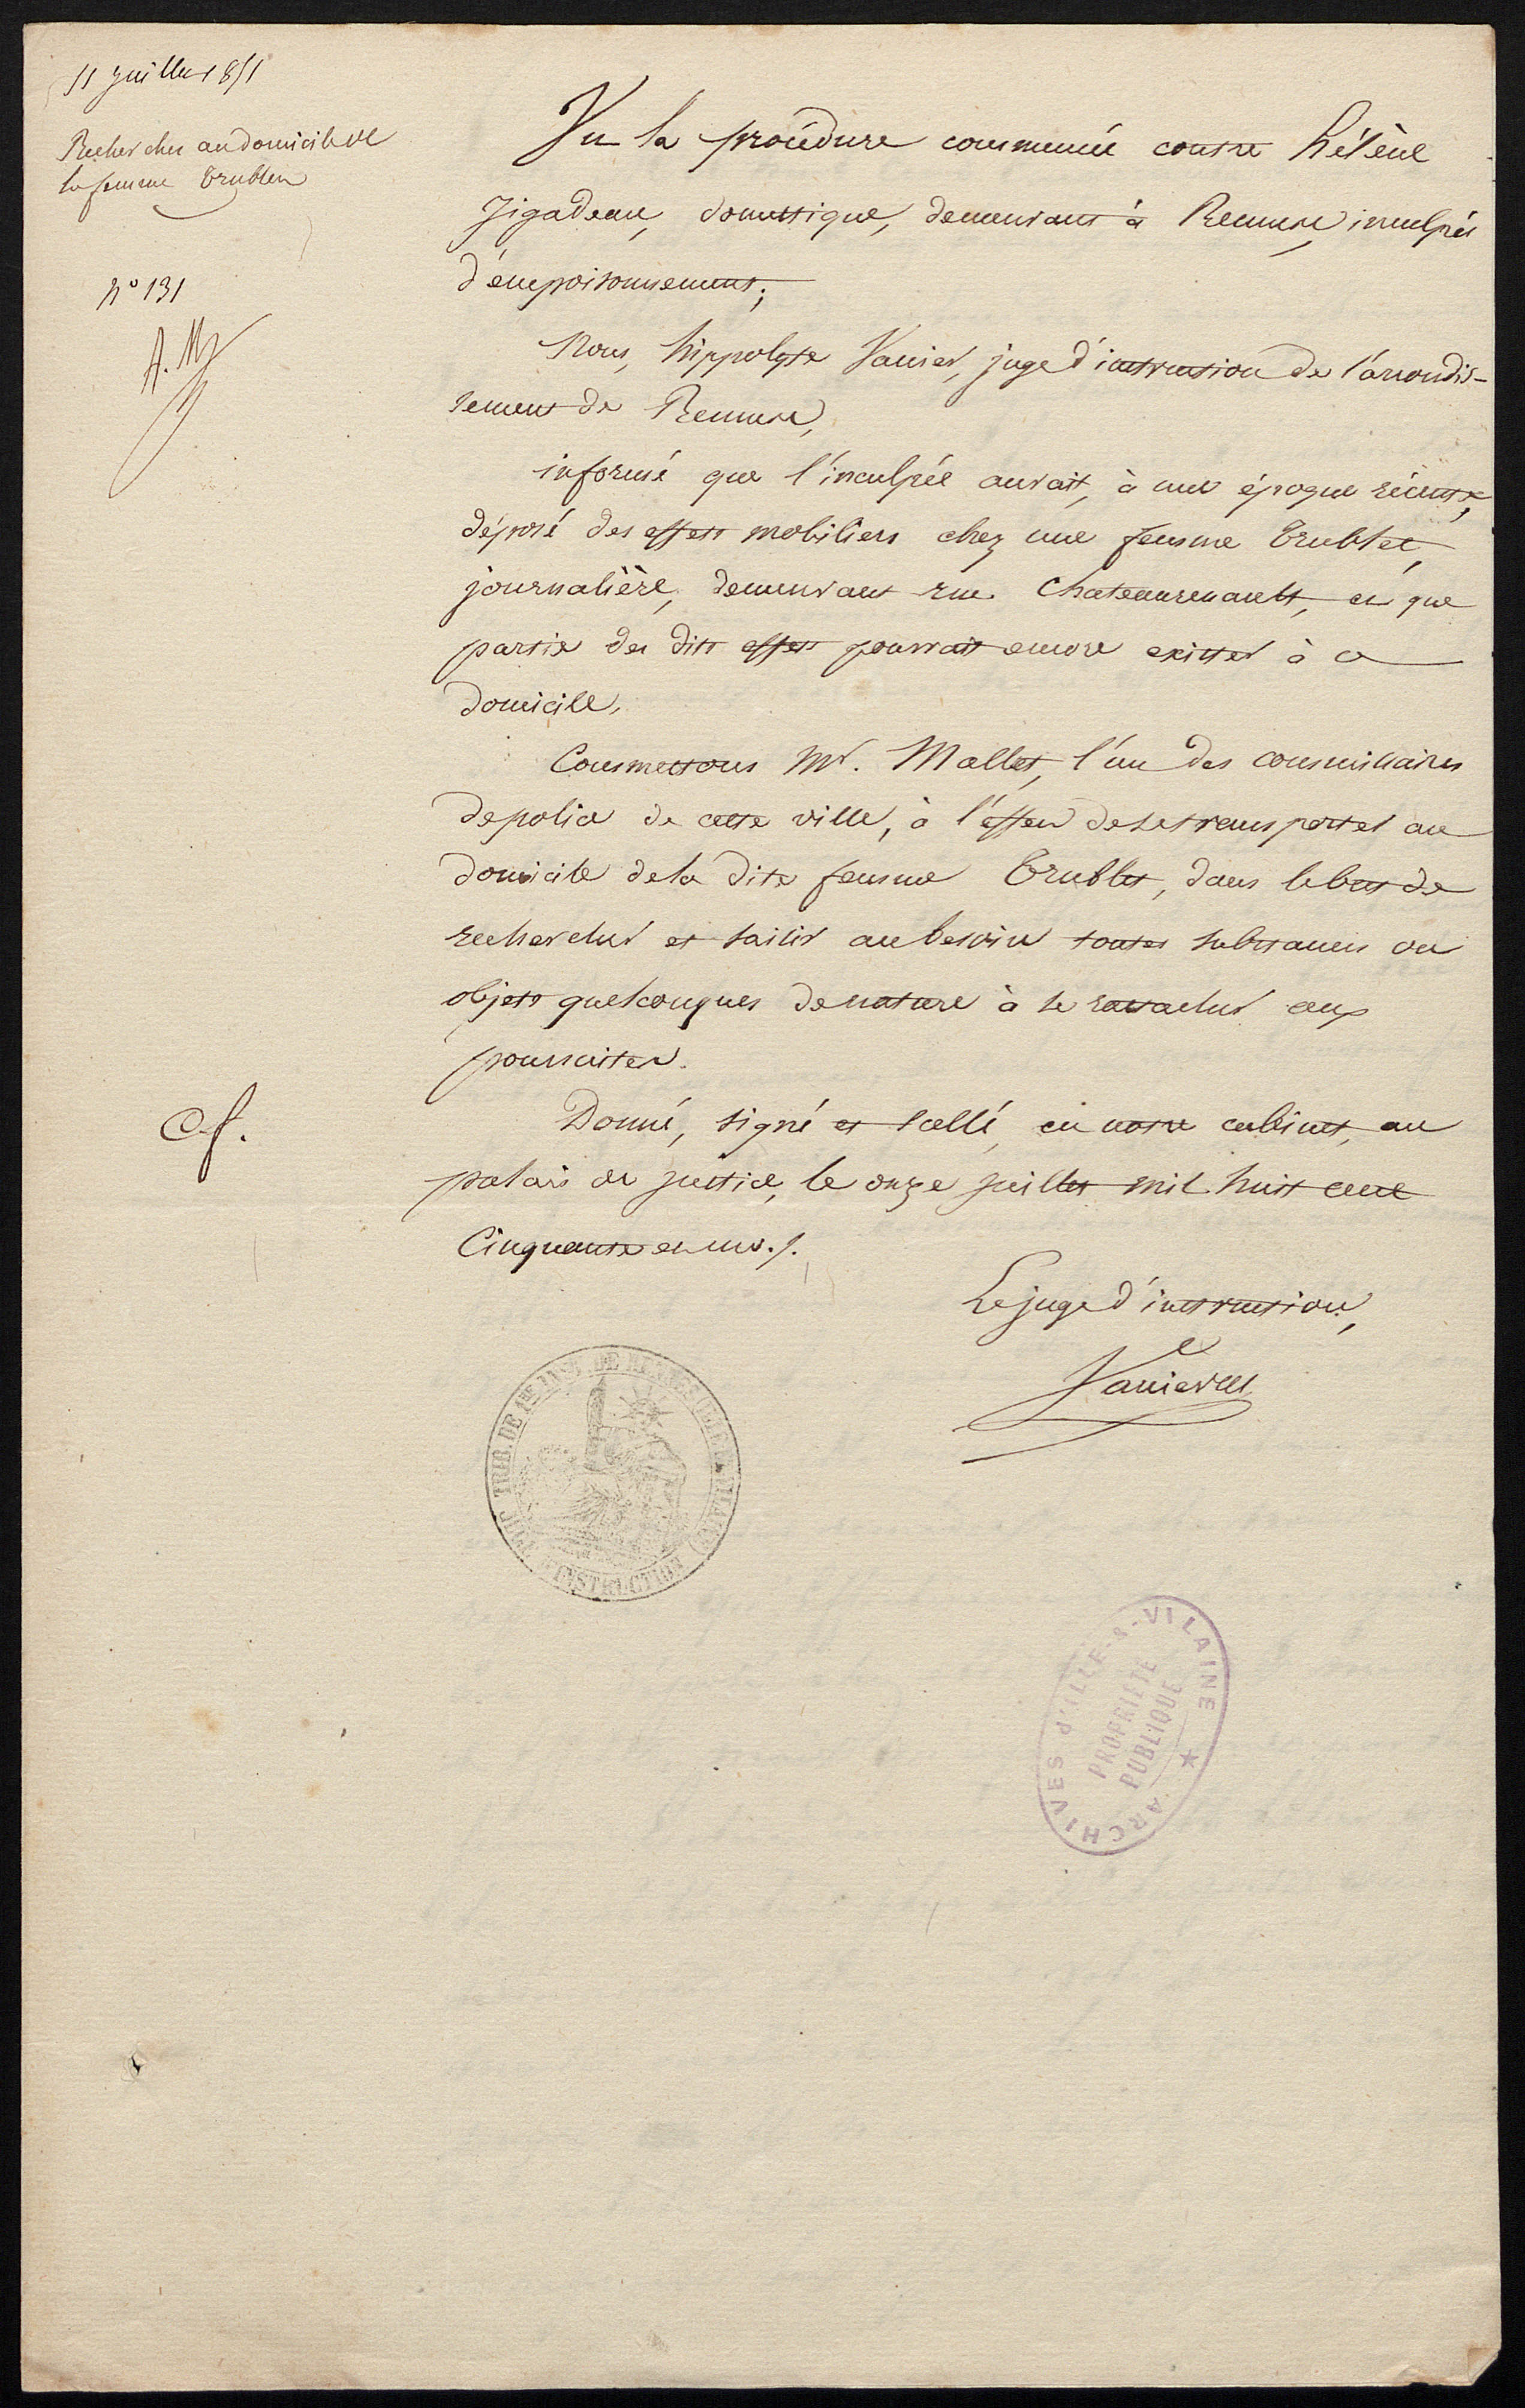 11 Juillet 1851
Recherches au domicile de
la femme Trublet
N° 131
A. M
Vu la procédure commencée contre hélène
Jigadeau, domestique, demeurant à Rennes, inculpée
d'empoisonnement;
Nous, hippolyte Vanier, juge d'instruction de l'arrondis-
sement de Rennes,
informé que l'inculpée aurait, à une époque récente,
déposé des effets mobiliers chez une femme Trublet,
journalière, demeurant rue Chateaurenault, et que
partie des dits effets pourrait encore exister à ce
domicile,
Commettons Mr. Mallet, l'un des commissaires
de police de cette ville, à l'effet de se transporter au
domicile de la dite femme Trublet, dans le but de
rechercher et saisir au besoin toutes substances ou
objets quelconques de nature à se rattacher aux
poursuites.
Cf.
Donné, signé et scellé, en notre cabinet, au
palais de justice, le onze juillet mil huit cent
Cinquante et un./.
Le juge d'instruction,
Vanier
TRIB. DE 1RE INST. DE RENNES (ILLE & VILAINE)
JUGE D'INSTRUCTION
ARCHIVES d'ILLE-&-VILAINE
PROPRIÉTÉ
PUBLIQUE